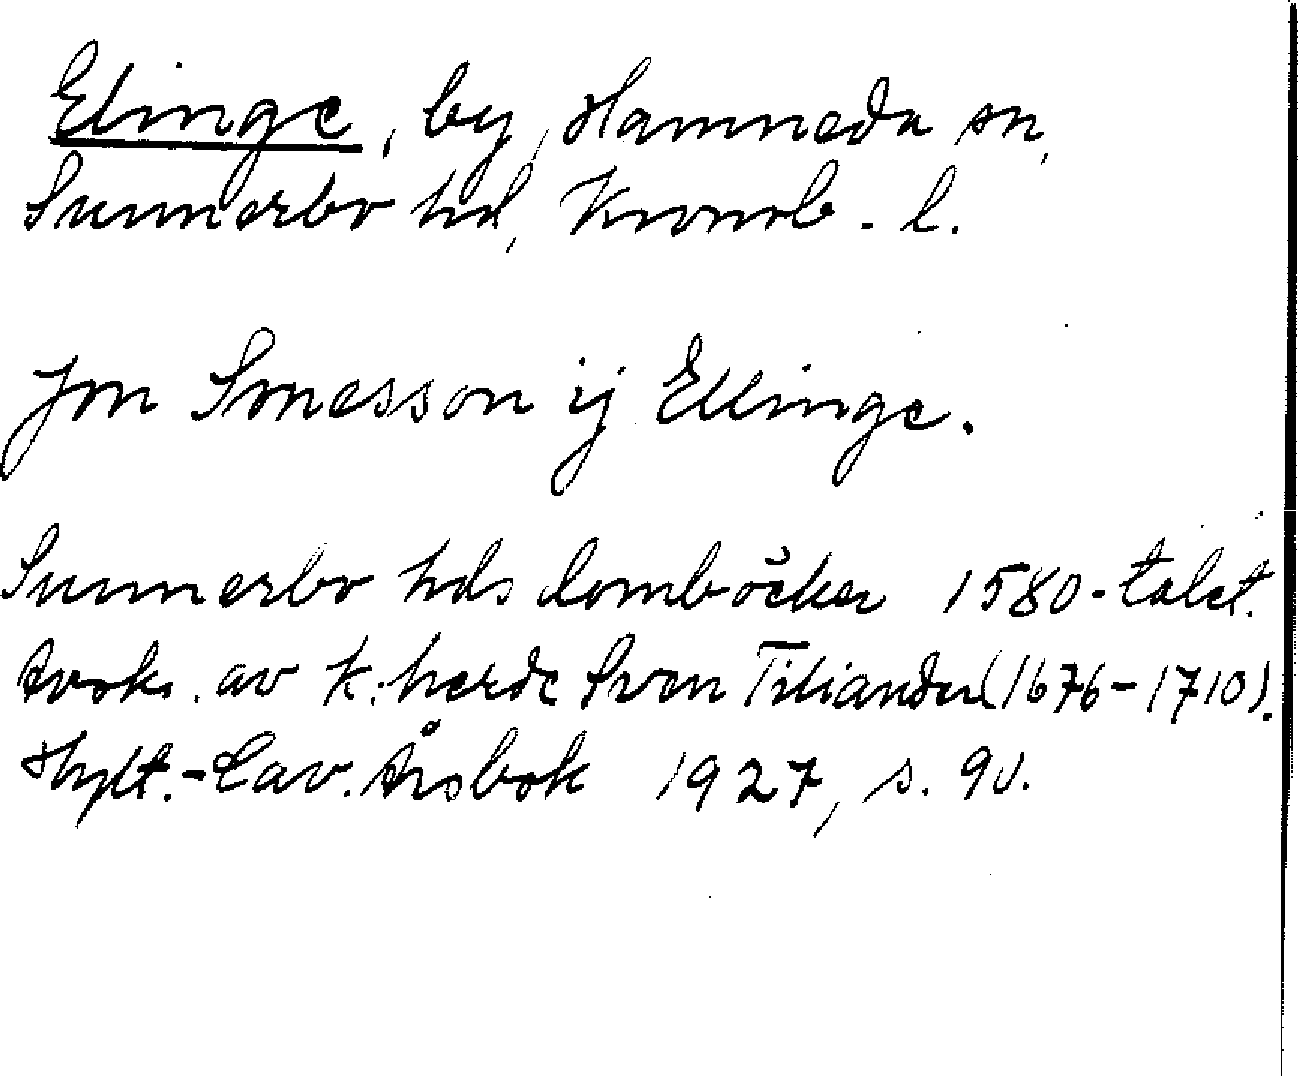 Elinge, by, Hamneda sn,
Sunnerbo hd, Kronob. l.
Jon Sonesson ij Ellinge.
Sunnerbo hds domböcker 1580-talet.
Avskr. av k.herde Sven Tiliander (1676-1710).
Hylt.-Cav. Årsbok 1927, s. 90.